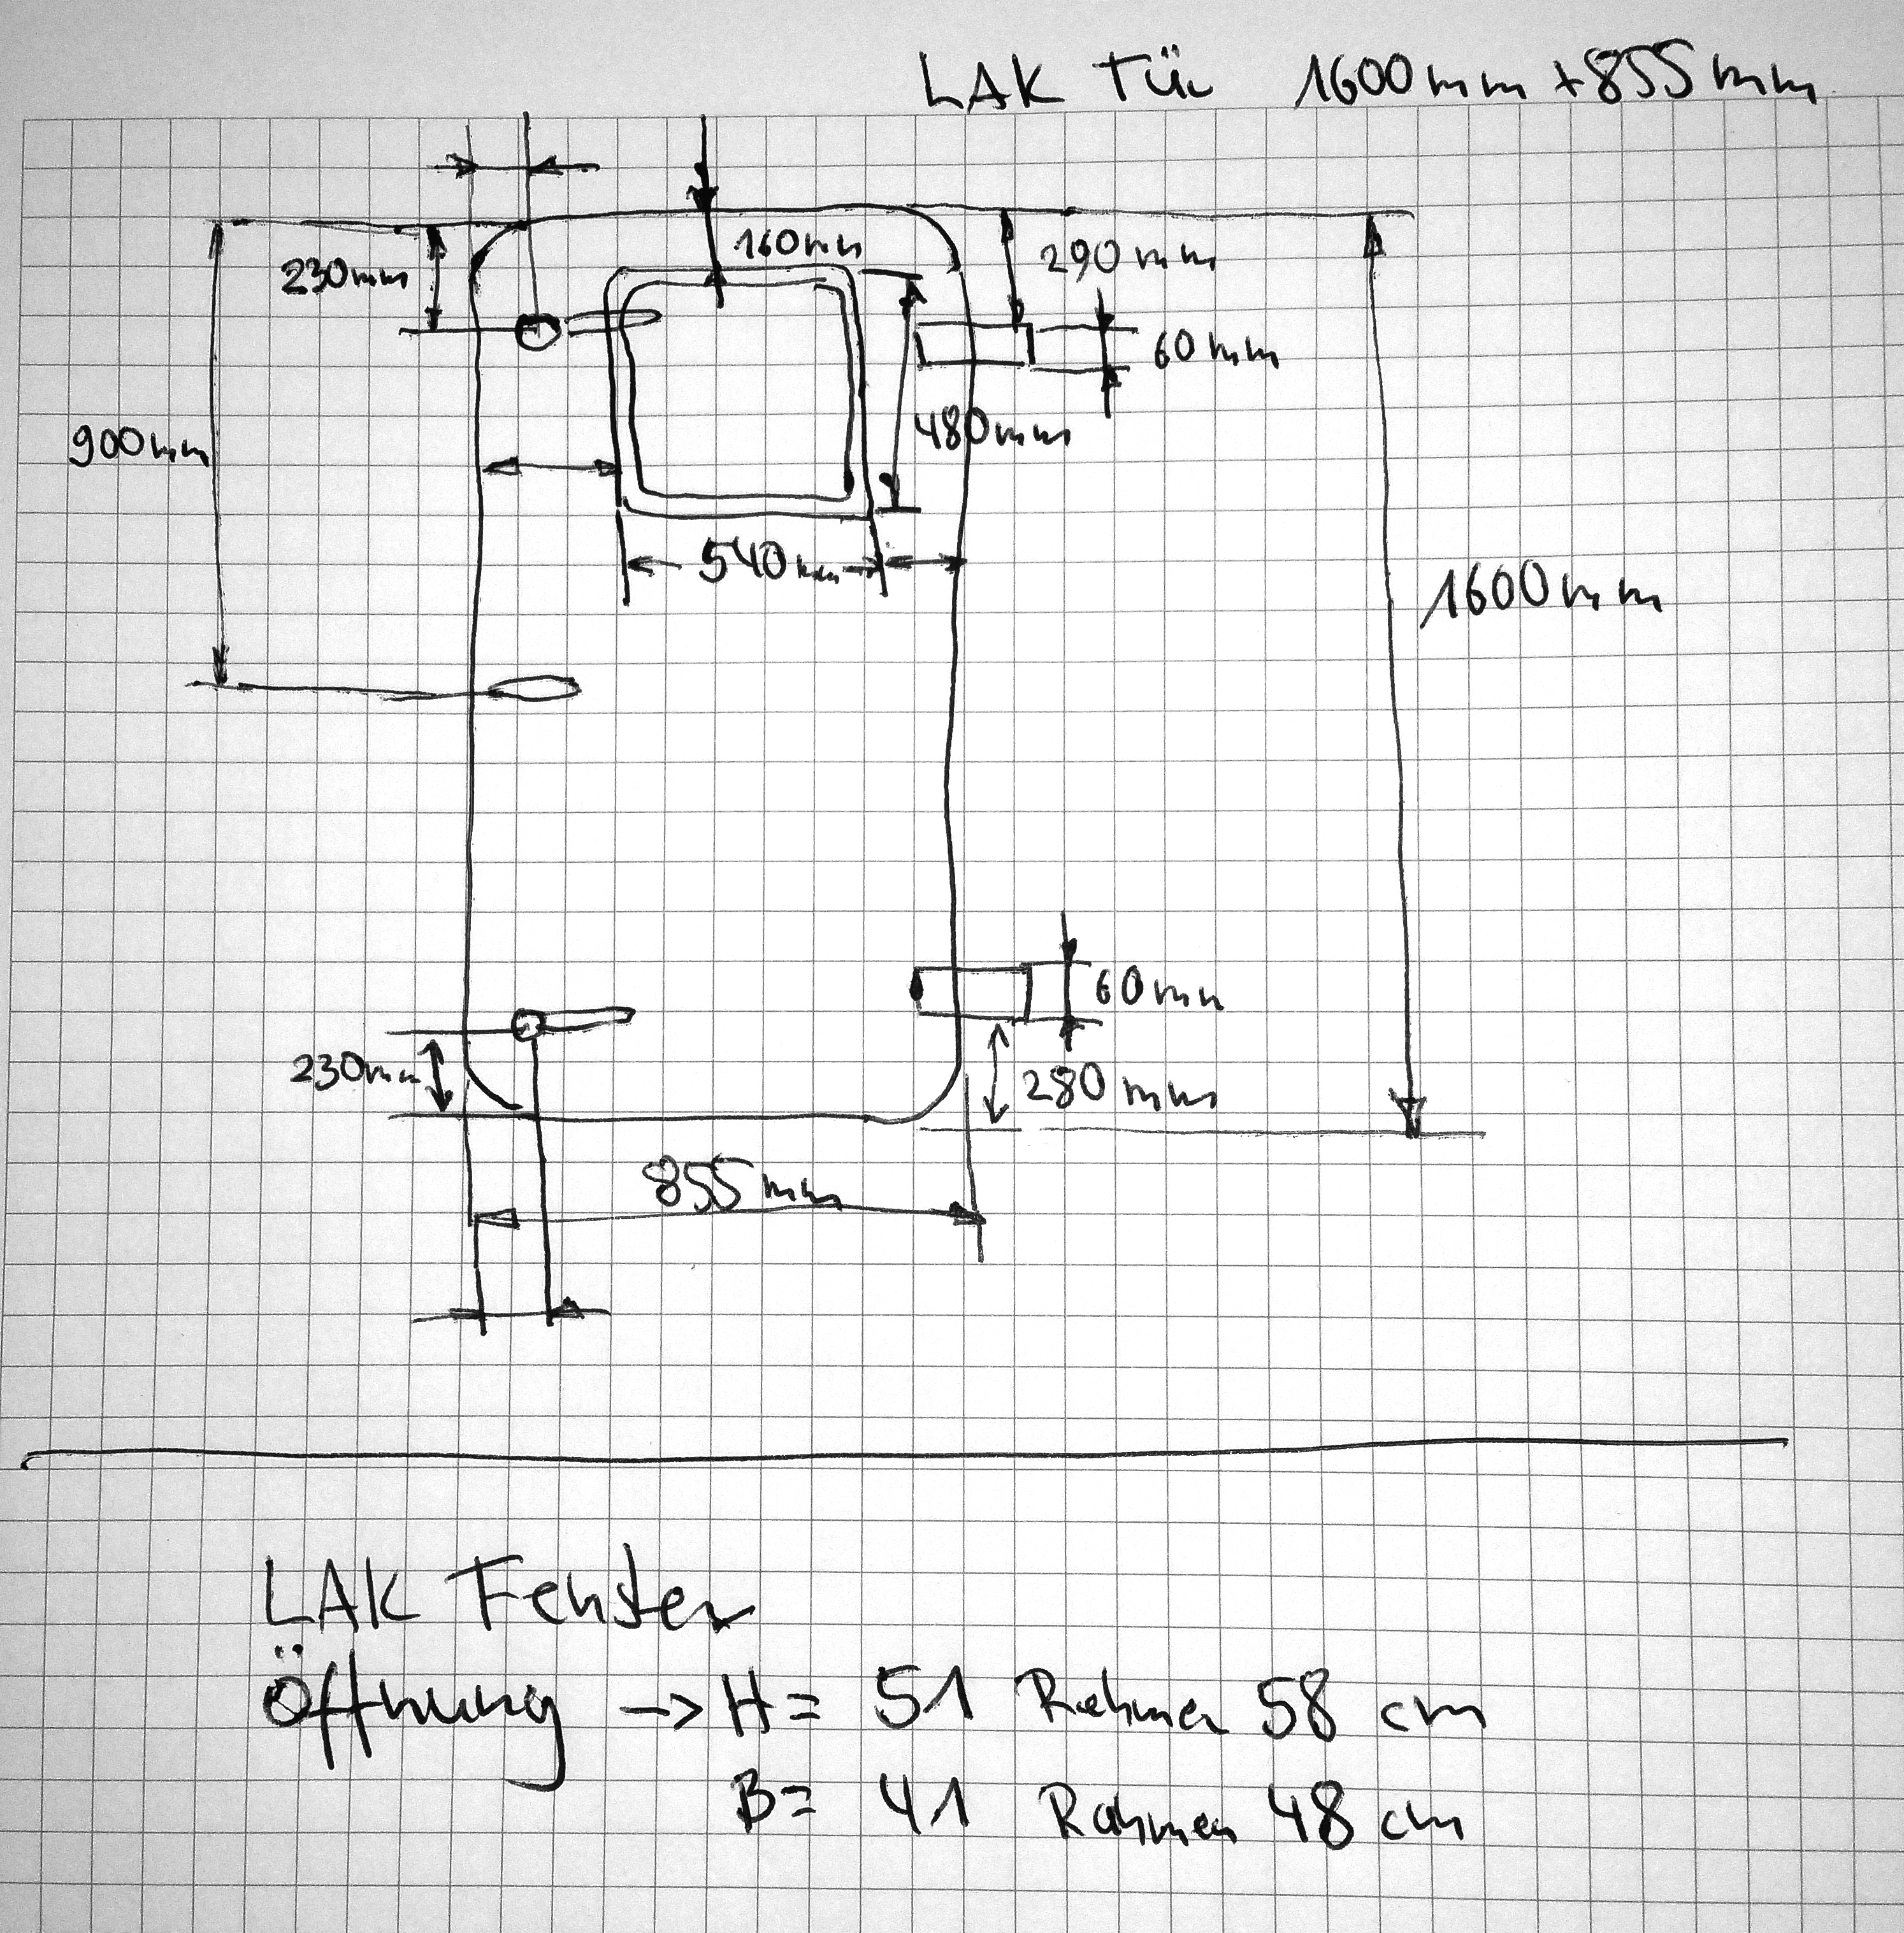 LAK Tür 1600mm + 855mm
160mm
230mm
290mm
60mm
900mm
480mm
540mm
1600mm
60mm
230mm
280mm
855mm
LAK Fenster
Öffnung -> H = 51 Rahmen 58 cm
B = 41 Rahmen 48 cm